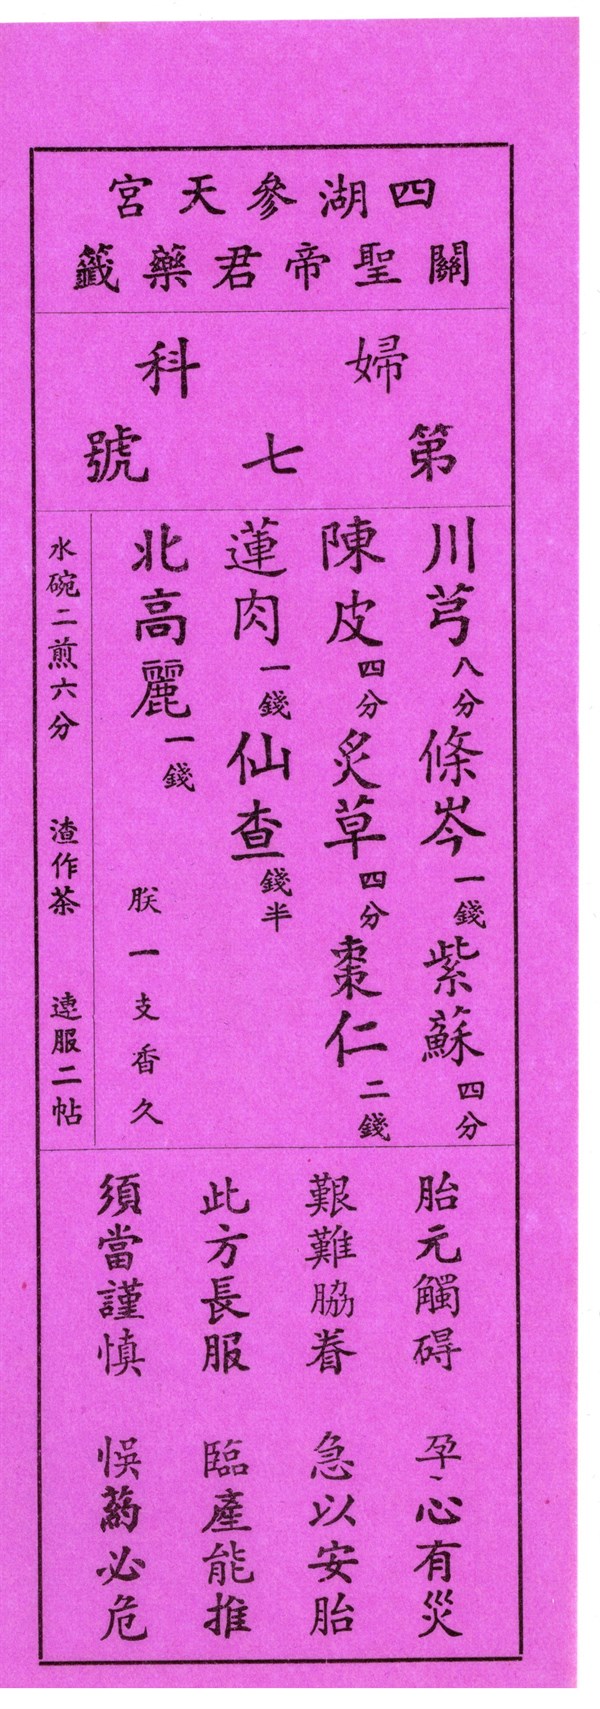 四湖參天宮
關聖帝君藥籤
婦科
第七號
川芎八分條岑一錢紫蘇四分
陳皮四分炙草四分棗仁二錢
蓮肉一錢仙查錢半
北高麗一錢 朕一支香久
水碗二煎六分 渣作茶 連服二帖
胎元觸碍 孕心有災
艱難脇眷 急以安胎
此方長服 臨產能推
須當謹慎 悞藥必危